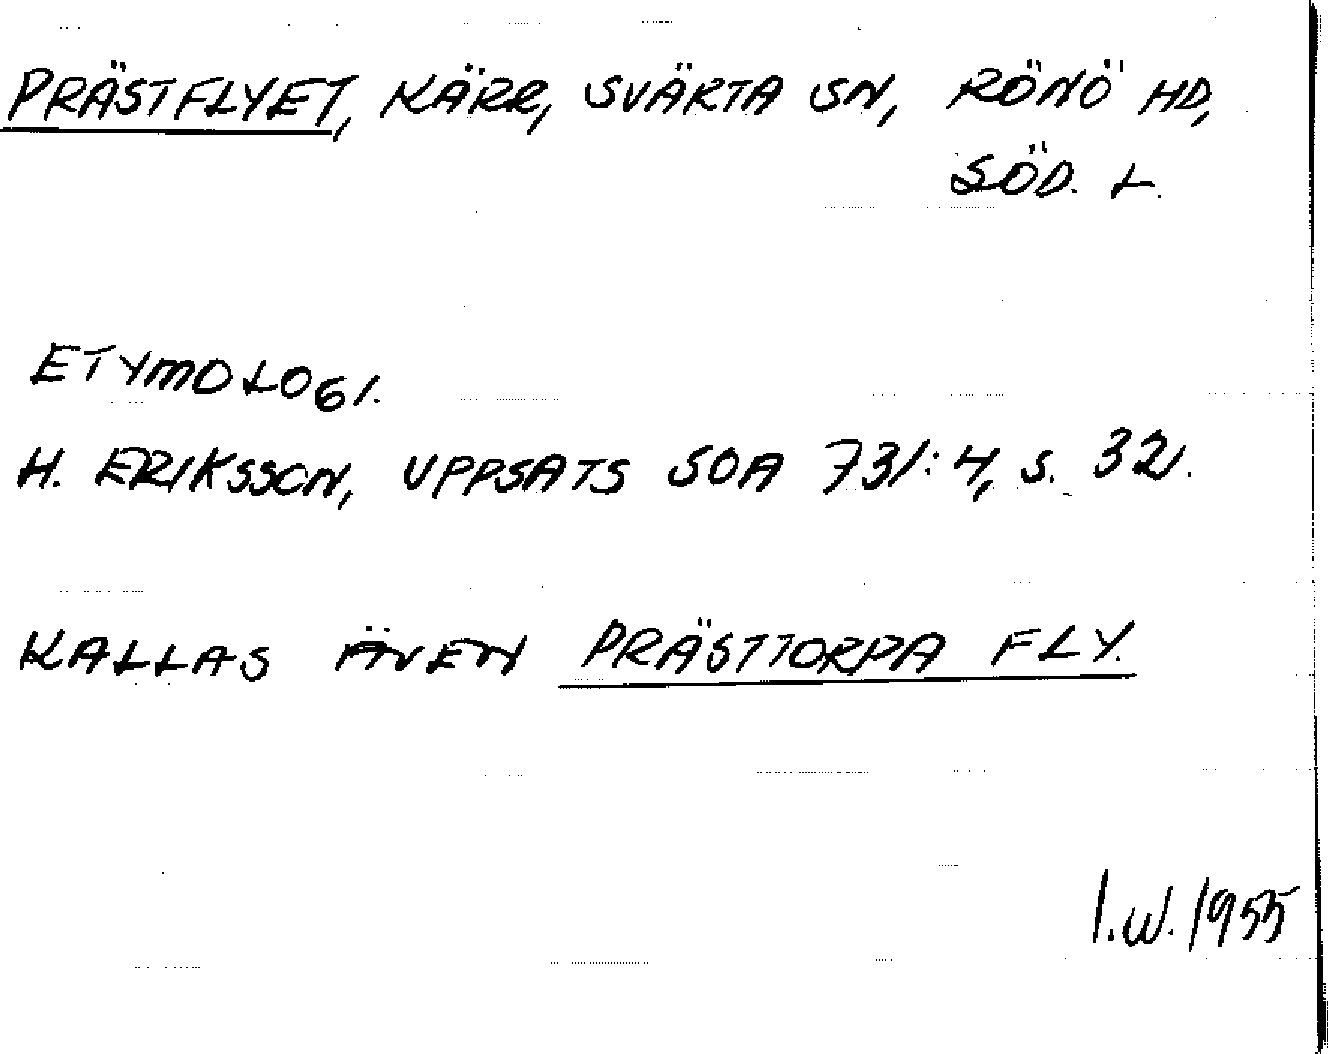 PRÄSTFLYET, KÄRR, SVÄRTA SN, RÖNÖ HD,
SÖD. L.
ETYMOLOGI.
H. ERIKSSON, UPPSATS SOA 731:4, S. 32.
KALLAS ÄVEN PRÄSTTORPA FLY.
I.W. 1955